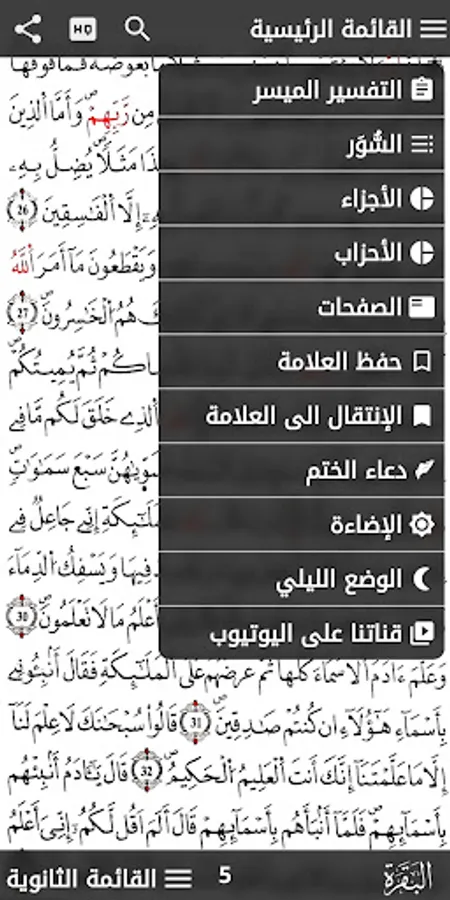 القائمة الرئيسية
HQ
التفسير الميسر
السُّوَر
الأجزاء
الأحزاب
الصفحات
حفظ العلامة
الإنتقال الى العلامة
دعاء الختم
الإضاءة
الوضع الليلي
قناتنا على اليوتيوب
بعوضة فما فوقها
مِن رَّبِّهِمْ وَأَمَّا الذِينَ
مَثَلاً يُضِلُّ بِهِۦ
إِلَّا الْفَٰسِقِينَ 26
وَيَقْطَعُونَ مَا أَمَرَ اَللَّهُ
هُمُ الْخَٰسِرُونَ 27
ثُمَّ يُمِيتُكُمْ
الذِے خَلَقَ لَكُم مَّا فِے
سَبْعَ سَمَٰوَٰتٖ
إِنِّے جَاعِلٞ فِے
فِيهَا وَيَسْفِكُ الدِّمَآءَ
أَعْلَمُ مَا لَا تَعْلَمُونَ 30
وَعَلَّمَ ءَادَمَ الَاسْمَآءَ كُلَّهَا ثُمَّ عَرَضَهُمْ عَلَى الْمَلَٰٓئِكَةِ فَقَالَ أَنۢبِـُٔونِے
بِأَسْمَآءِ هَٰٓؤُلَآءِ ان كُنتُمْ صَٰدِقِينَ 31 قَالُوا۟ سُبْحَٰنَكَ لَا عِلْمَ لَنَآ
إِلَّا مَا عَلَّمْتَنَآ إِنَّكَ أَنتَ الْعَلِيمُ الْحَكِيمُ 32 قَالَ يَٰٓـَٔادَمُ أَنۢبِئْهُم
بِأَسْمَآئِهِمْ فَلَمَّآ أَنۢبَأَهُم بِأَسْمَآئِهِمْ قَالَ أَلَمَ اَقُل لَّكُمُۥٓ إِنِّيَ أَعْلَمُ
البقرة
5
القائمة الثانوية